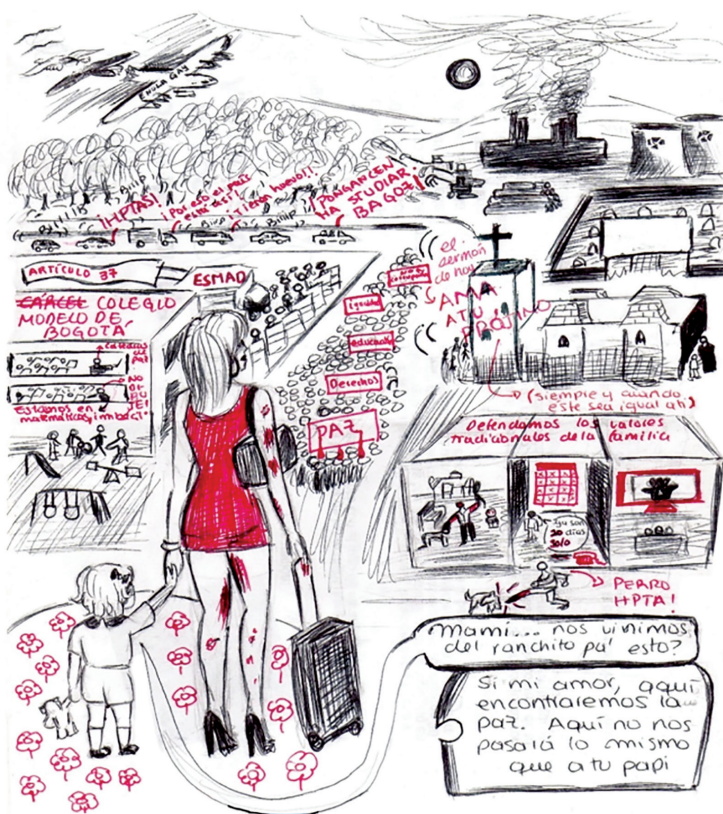 ENOLA GAY
Biiip
¡HPTAS!
¡Por eso el país
está así!
Biiip
¡Tibia huevo!!
Biiip
¡PONGANCEN
HA STUDIAR
BAGOZ!
ARTÍCULO 37
ESMAD
CARCEL COLEGIO
MODELO DE
BOGOTÁ
Estamos en
matemáticas, imbécil
Igualdad
educación
Derechos
PAZ
el
sermón
de hoy
AMA
A TU
PRÓJIMO
(siempre y cuando
este sea igual a ti)
Defendamos los valores
tradicionales de la familia
20 días
solo
PERRO
HPTA!
Mami... nos vinimos
del ranchito pa' esto?
Si mi amor, aquí
encontraremos la
paz. Aquí no nos
pasará lo mismo
que a tu papi